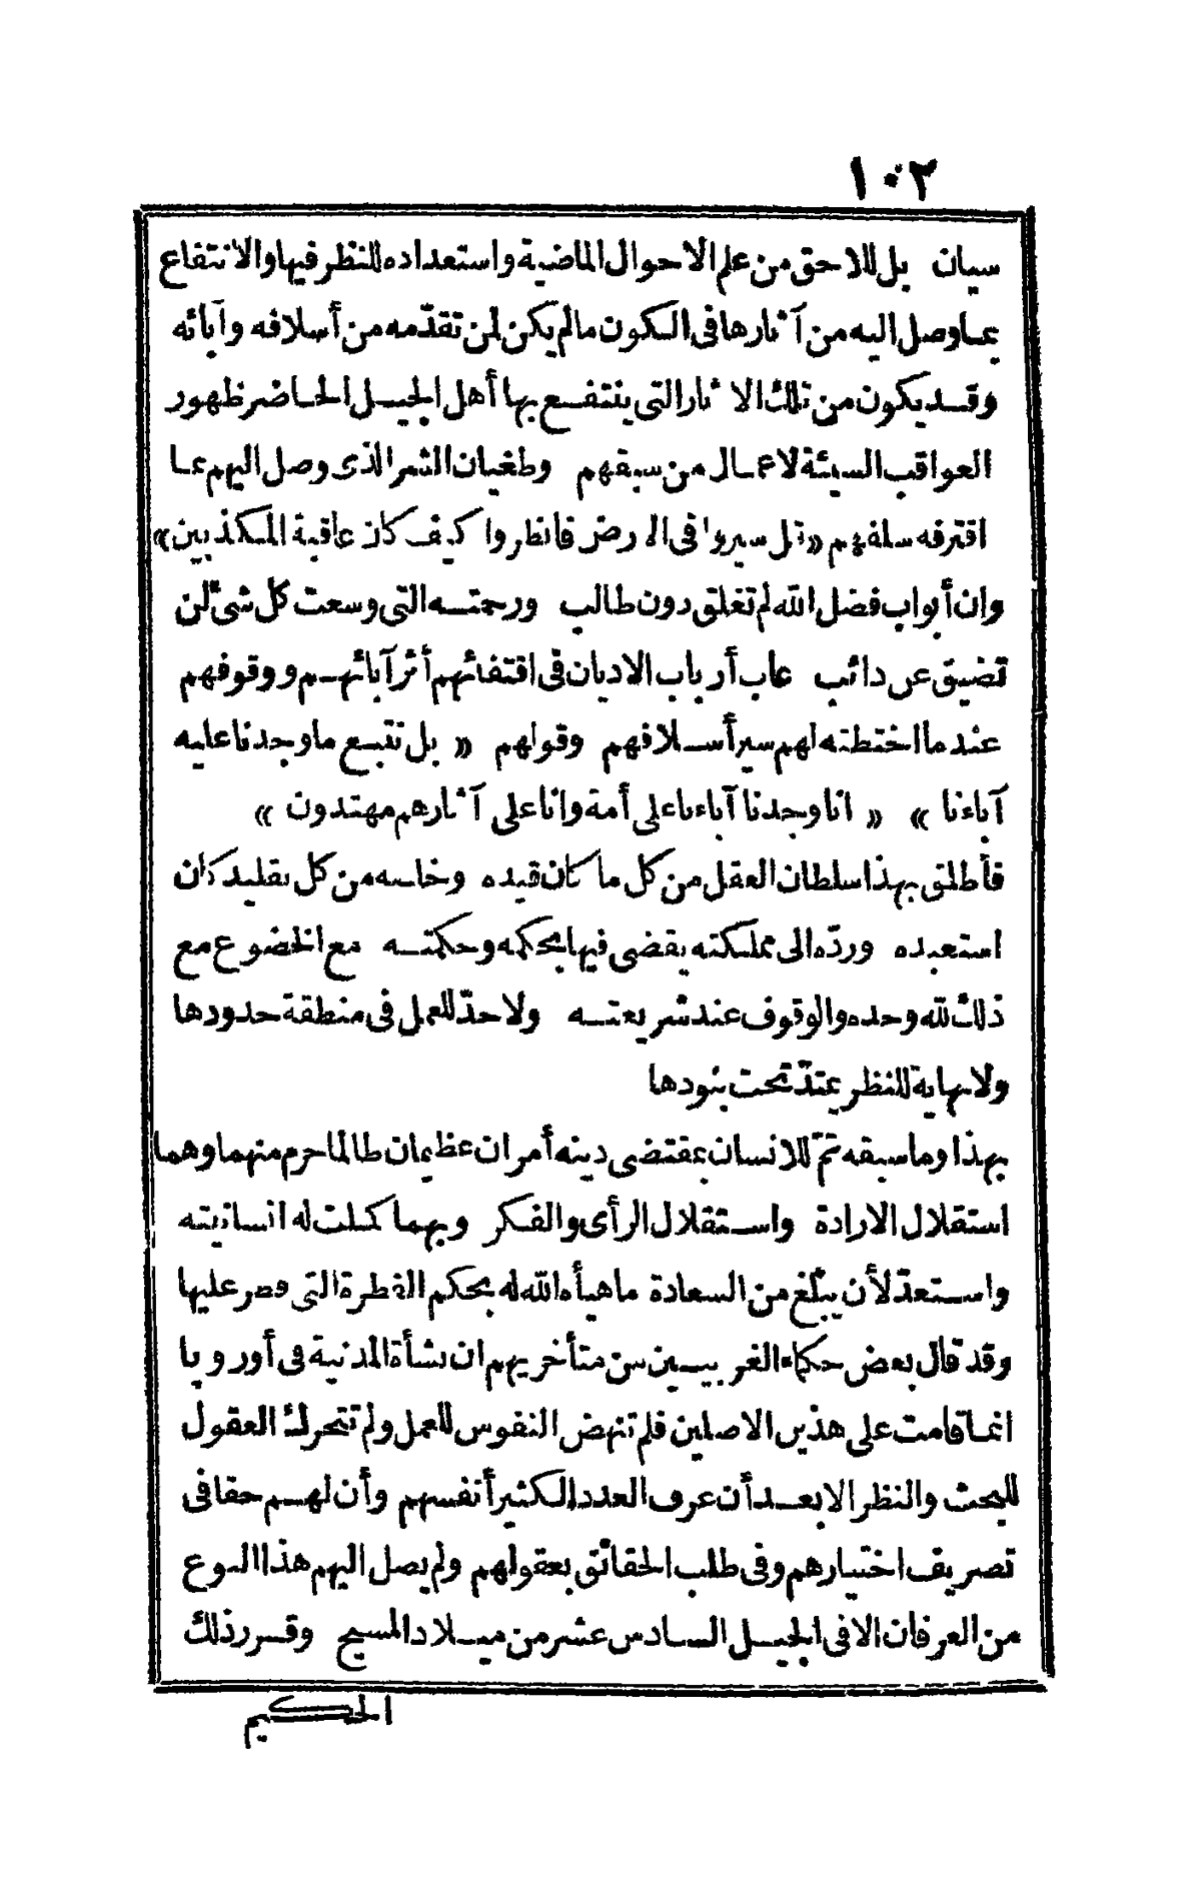 ١٠٢
سيان بل للاحق من علم الاحوال الماضية واستعداده للنظر فيها والانتفاع
بما وصل اليه من آثارها فى الكون ما لم يكن لمن تقدّمه من أسلافه وآبائه
وقد يكون من تلك الاثار التى ينتفع بها أهل الجيل الحاضر ظهور
العواقب السيئة لاعمال من سبقهم وطغيان الشر الذى وصل اليهم بما
اقترفه سلفهم «قل سيروا فى الارض فانظروا كيف كان عاقبة المكذبين»
وان أبواب فضل الله لم تغلق دون طالب ورحمته التى وسعت كل شئ لن
تضيق عن دائب عاب أرباب الاديان فى اقتفائهم أثر آبائهم ووقوفهم
عند ما اختطته لهم سير أسلافهم وقولهم « بل نتبع ما وجدنا عليه
آباءنا » « انا وجدنا آباءنا على أمة وانا على آثارهم مهتدون »
فأطلق بهذا سلطان العقل من كل ما كان قيده وخلصه من كل تقليد كان
استعبده وردّه الى مملكته يقضى فيها بحكمه وحكمته مع الخضوع مع
ذلك لله وحده والوقوف عند شريعته ولا حدّ للعمل فى منطقة حدودها
ولا نهاية للنظر يمتدّ تحت بنودها
بهذا وما سبقه تمّ للانسان بمقتضى دينه أمران عظيمان طالما حرم منهما وهما
استقلال الارادة واستقلال الرأى والفكر وبهما كملت له انسانيته
واستعدّ لأن يبلغ من السعادة ما هيأه الله له بحكم الفطرة التى فطر عليها
وقد قال بعض حكماء الغربيين من متأخريهم ان نشأة المدنية فى أوروپا
انما قامت على هذين الاصلين فلم تنهض النفوس للعمل ولم تتحرك العقول
للبحث والنظر الا بعد أن عرف العدد الكثير أنفسهم وأن لهم حقا فى
تصريف اختيارهم وفى طلب الحقائق بعقولهم ولم يصل اليهم هذا النوع
من العرفان الا فى الجيل السادس عشر من ميلاد المسيح وقرر ذلك
الحكيم